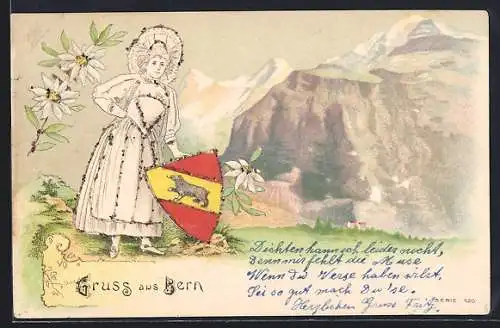 Dichten kann ich leider nicht,
Denn mir fehlt die Muse
Wenn du Verse haben willst,
Sei so gut mach du'se.
Herzlichen Gruss Fritz
Gruss aus Bern
FAERIE 420